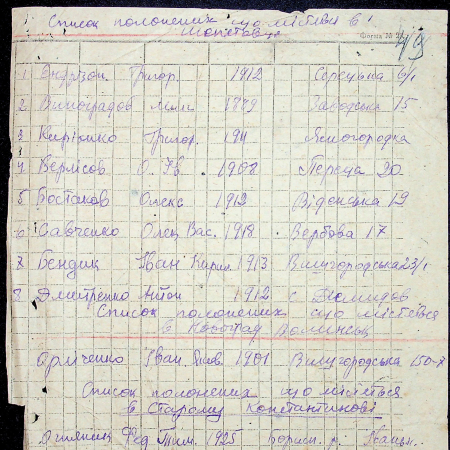 Список полонених що містяться в
Шепетовце
Форма № 2
1 Григор. 1912 6/1
2 Виноградов Мик. 1889 Заводська 15
3 Кириенко Григор. 1911 Ясногородка
4 Верисов О. Ів. 1908 Переца 20
5 Бостаков Олекс 1912 Віденська 19
6 Савченко Олец Вас. 1918 Вербова 17
7 Бендик Іван Кирил. 1913 Вишгородська 23/1
8 Дмитренко Антон 1912 с. Демидов
Список полонених що міститься
в Новоград Волинськ
Іван Яков. 1901 Вишгородська
Список полонених що міститься
в Старому Константинові
Фед Тим. 1925